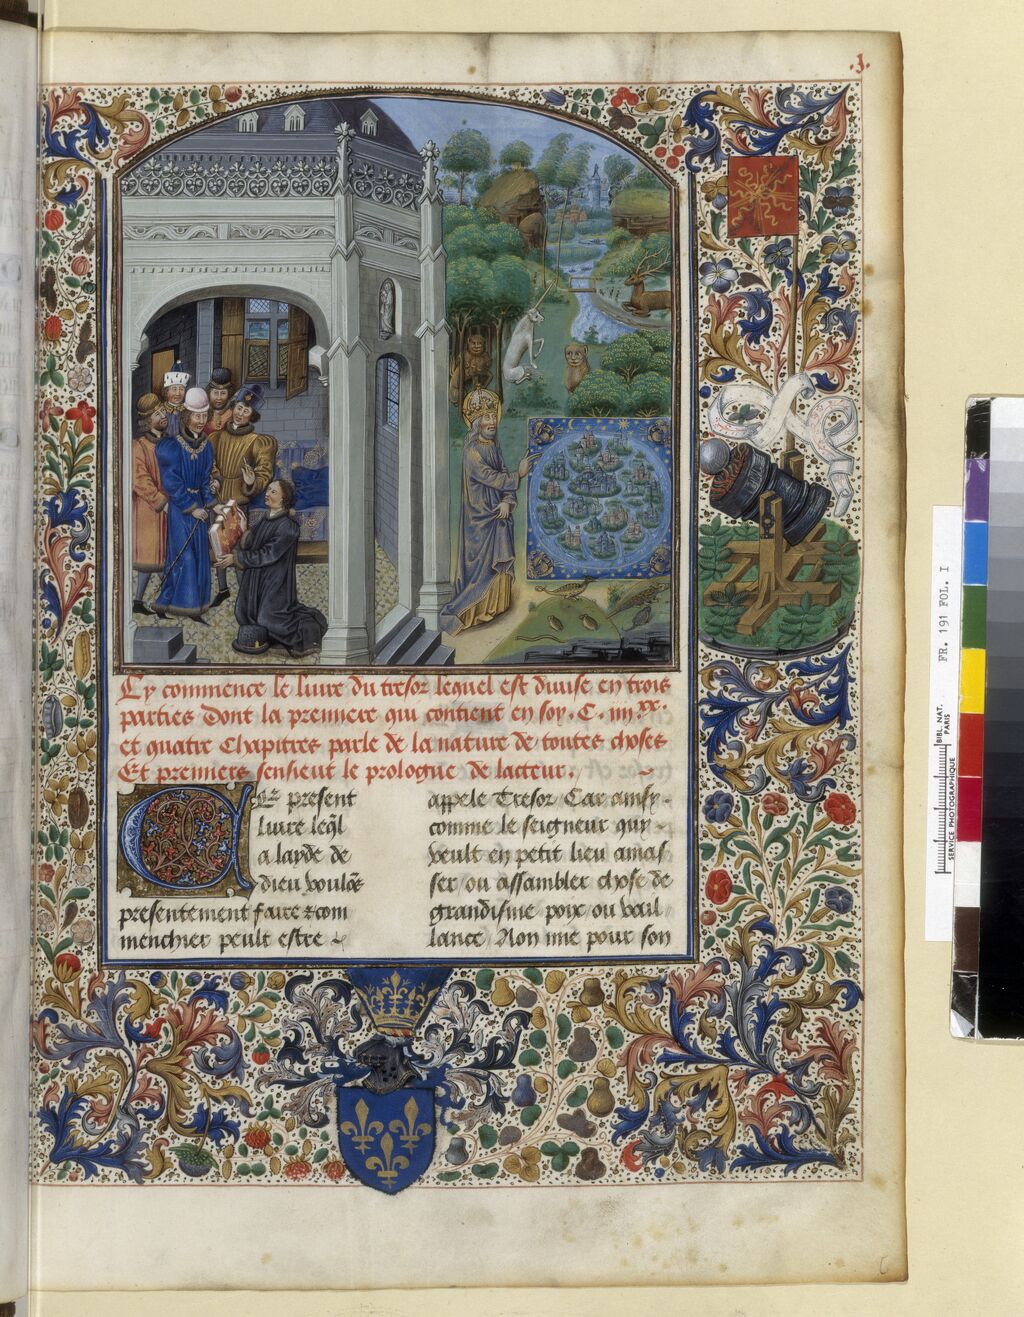 .J.
Cy commence le liure du tresor lequel est diuise en trois
parties Dont la premiere qui contient en soy . C . iiii.xx.
et quatre Chapitres parle de la nature de toutes choses
Et premiers sensieut le prologue de lacteur .
present
liure leql
a layde de
dieu voulōs
presentement faire ⁊ com
menchier peult estre
appele Tresor Car ainsy
comme le seigneur quy
veult en petit lieu amas
ser ou assambler chose de
grandisme poix ou vail
lance Non mie pour son
BIBL. NAT. PARIS
SERVICE PHOTOGRAPHIQUE
FR. 191 FOL. I